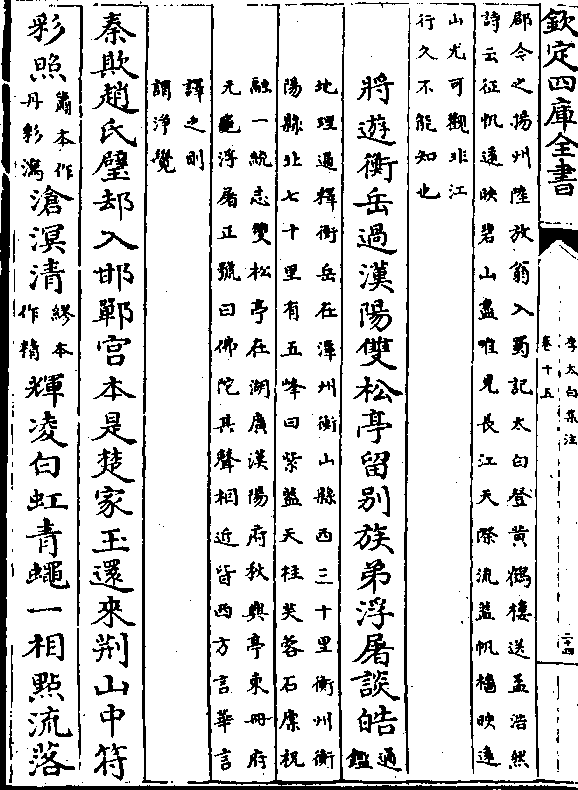 欽定四庫全書
李太白集注
卷十五
二十四
郡令之揚州陸放翁入蜀記太白登黃鶴樓送孟浩然
詩云征帆遠映碧山盡唯見長江天際流蓋帆檣映遠
山尤可觀非江
行久不能知也
將遊衡岳過漢陽雙松亭留別族弟浮屠談皓通鑑
地理通釋衡岳在潭州衡山縣西三十里衡州衡
陽縣北七十里有五峰曰紫蓋天柱芙蓉石廩祝
融一統志雙松亭在湖廣漢陽府秋興亭東冊府
元龜浮屠正號曰佛陀其聲相近皆西方言華言
譯之則
謂淨覺
秦欺趙氏璧却入邯鄲宮本是楚家玉還來荆山中符
彩照蕭本作丹彩瀉滄溟清繆本作精輝凌白虹青蠅一相點流落